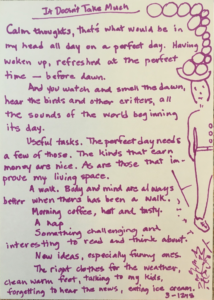 It Doesn't Take Much
Calm thoughts, that's what would be in
my head all day on a perfect day. Having
woken up, refreshed at the perfect
time — before dawn.
And you watch and smell the dawn,
hear the birds and other critters, all
the sounds of the world beginning
its day.
Useful tasks. The perfect day needs
a few of those. The kinds that earn
money are nice. As are those that im-
prove my living space.
A walk. Body and mind are always
better when there has been a walk.
Morning coffee, hot and tasty.
A nap
Something challenging and
interesting to read and think about.
New ideas, especially funny ones.
The right clothes for the weather,
clean warm feet, talking to my kids,
forgetting to hear the news, eating ice cream.